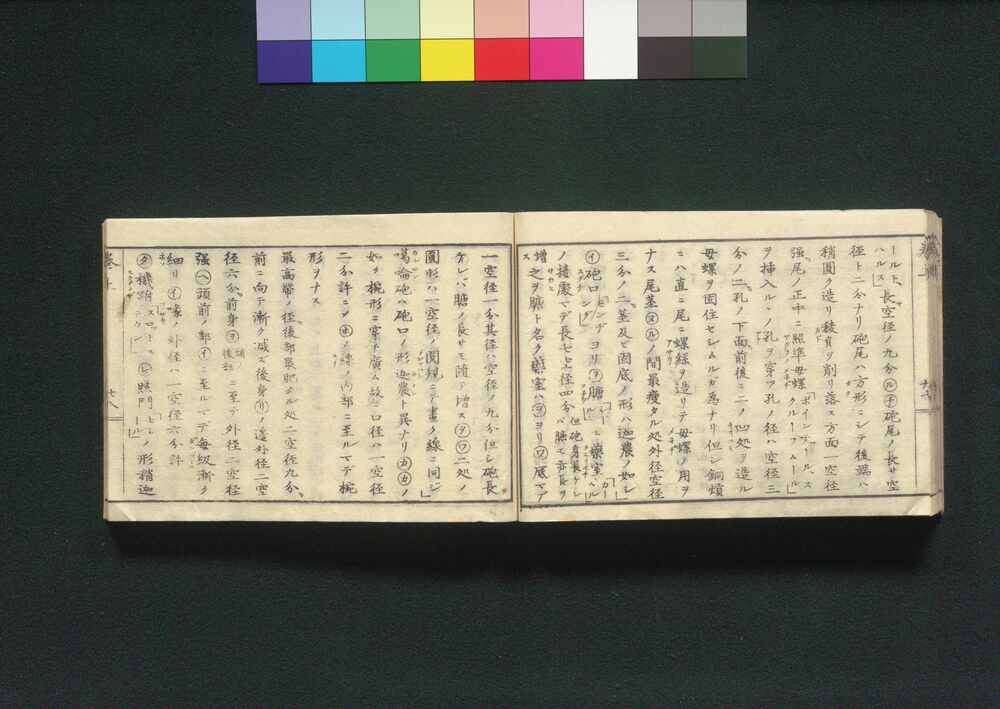 ールト」長空径ノ九分㋸㋠砲尾ノ長サ空
ハルス
径ト二分ナリ砲尾ハ方形ニシテ後端ハ
稍圓ク造リ稜負ヲ削リ落ス方面一空径
强尾ノ正中ニ照準母螺「ポインテールス
クルーフムール」
ヲ挿入ルヽノ孔ヲ穿フ孔ノ径ハ空径三
分ノ二孔ノ下面前後ニ二ノ凹処ヲ造ル
母螺ヲ固住セシムルガ爲ナリ但シ銅熕
ニハ直ニ尾ニ螺線ヲ造リテ母螺ノ用ヲ
ナス尾莖㋦㋸ノ間最瘦タル処外径空径
三分ノ二莖及ビ固底ノ形ハ迦農ノ如シ
㋑砲口
ヨリ㋾膅
ト藥室
ノ接處マデ長七空径四分
但砲身長ケレ
バ膅モ亦長ヲ
増ス
之ヲ膅ト名ク藥室ハ㋾ヨリ㋻底マデ
一空径一分其径ハ空径ノ九分但シ砲長
ケレバ膅ノ長サモ随テ増ス㋾㋻二処ノ
圓形ハ一空径ノ圓規ニテ畫ク線ニ同シ
葛論砲ハ砲口ノ形迦農ト異ナリ㋕㋕ノ
如ク椀形ニ穿チ廣ム故ニ口径ハ一空径
二分許ニシ㋭ノ縁ノ内部ニ至ルマデ椀
形ヲナス
最高帶ノ径後部最肥タル処二空径九分
前ニ向テ漸ク减ズ後身㋷ノ邉外径二空
径六分前身㋾
ニ至テ外径二空径
强㋬頭前ノ部㋑ニ至ルマデ毎級漸ク
細リ㋑縁ノ外径ハ一空径六分許
㋟機鞘
㋪照門
ノ形稍迦
卷十
七八